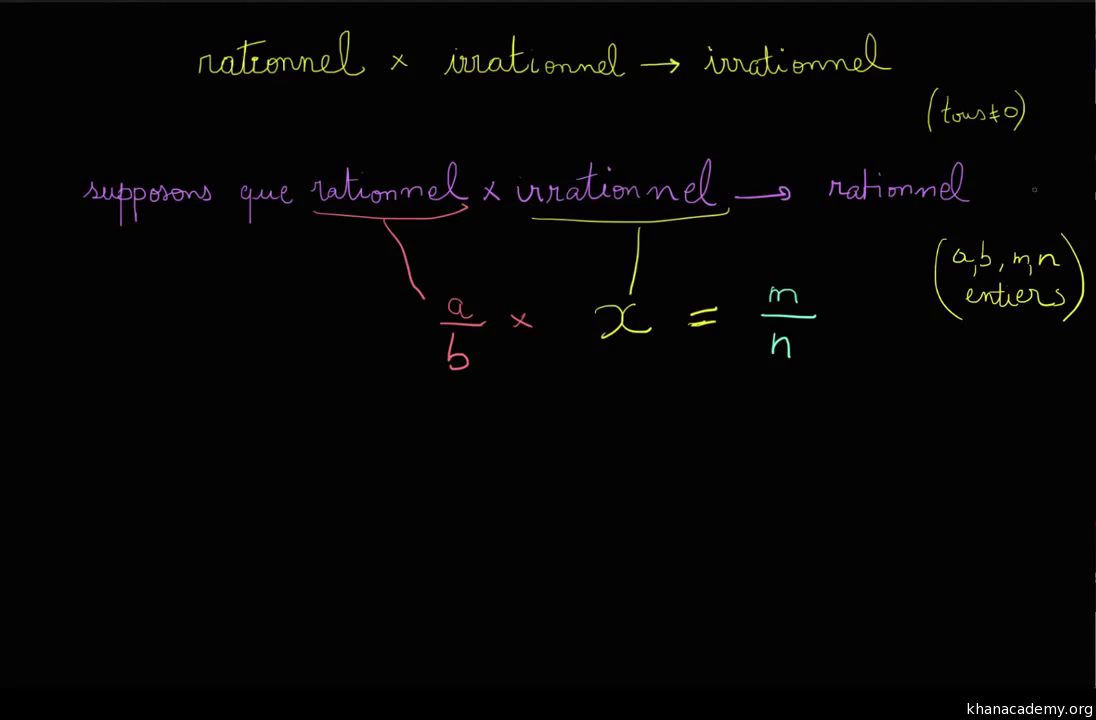 rationnel × irrationnel → irrationnel
(tous≠0)
supposons que rationnel × irrationnel → rationnel
(a,b, m,n
entiers)
a/b × x = m/n
khanacademy.org